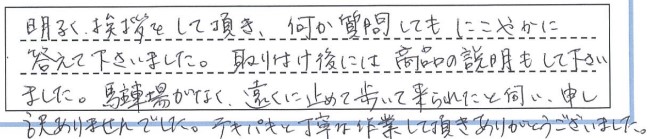 明るく挨拶をして頂き、何か質問してもにこやかに
答えて下さいました。取り付け後には商品の説明もして下さい
ました。駐車場がなく、遠くに止めて歩いて来られたと伺い、申し
訳ありませんでした。テキパキと丁寧な作業して頂きありがとうございました。